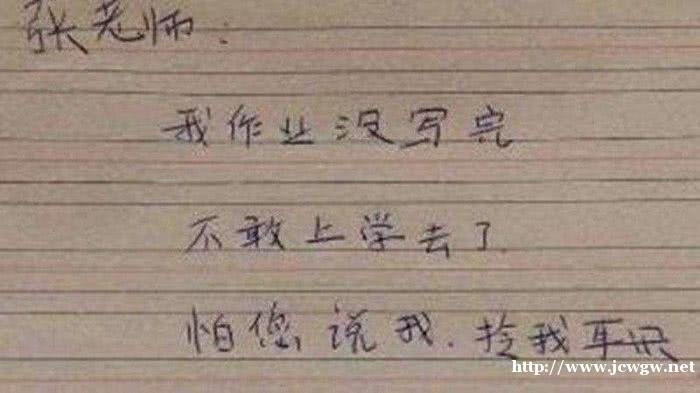 张老师：
我作业没写完
不敢上学去了
怕您说我.拎我耳
http://www.jcwgw.net